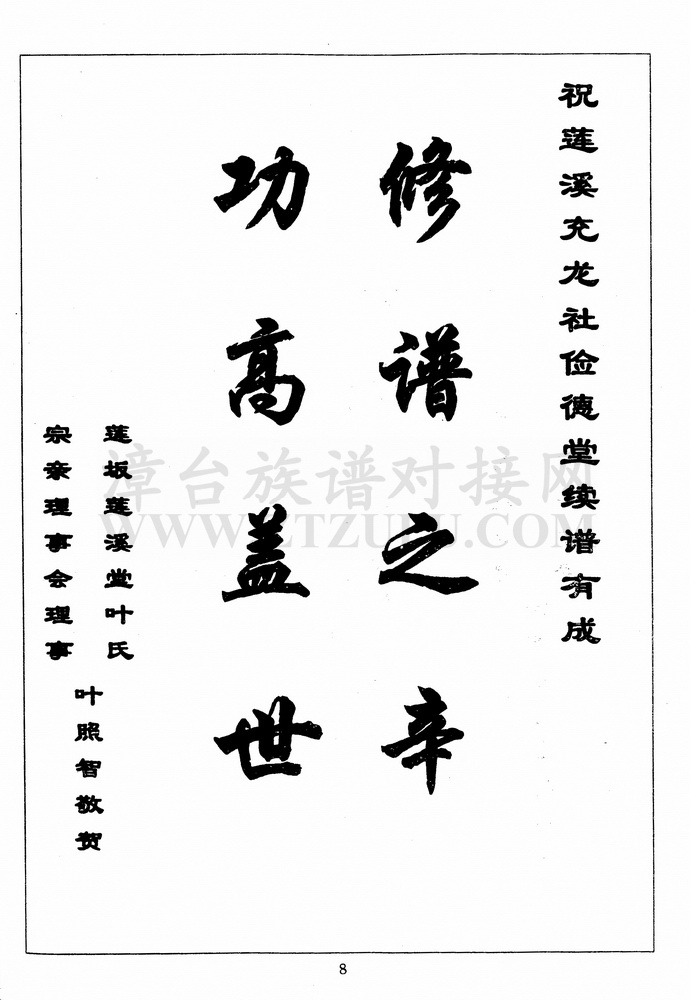 祝莲溪充龙社俭德堂续谱有成
修谱之辛
功高盖世
莲坂莲溪堂叶氏
宗亲理事会理事
叶照智敬贺
漳台族谱对接网
WWW.ZTZUPU.COM
8